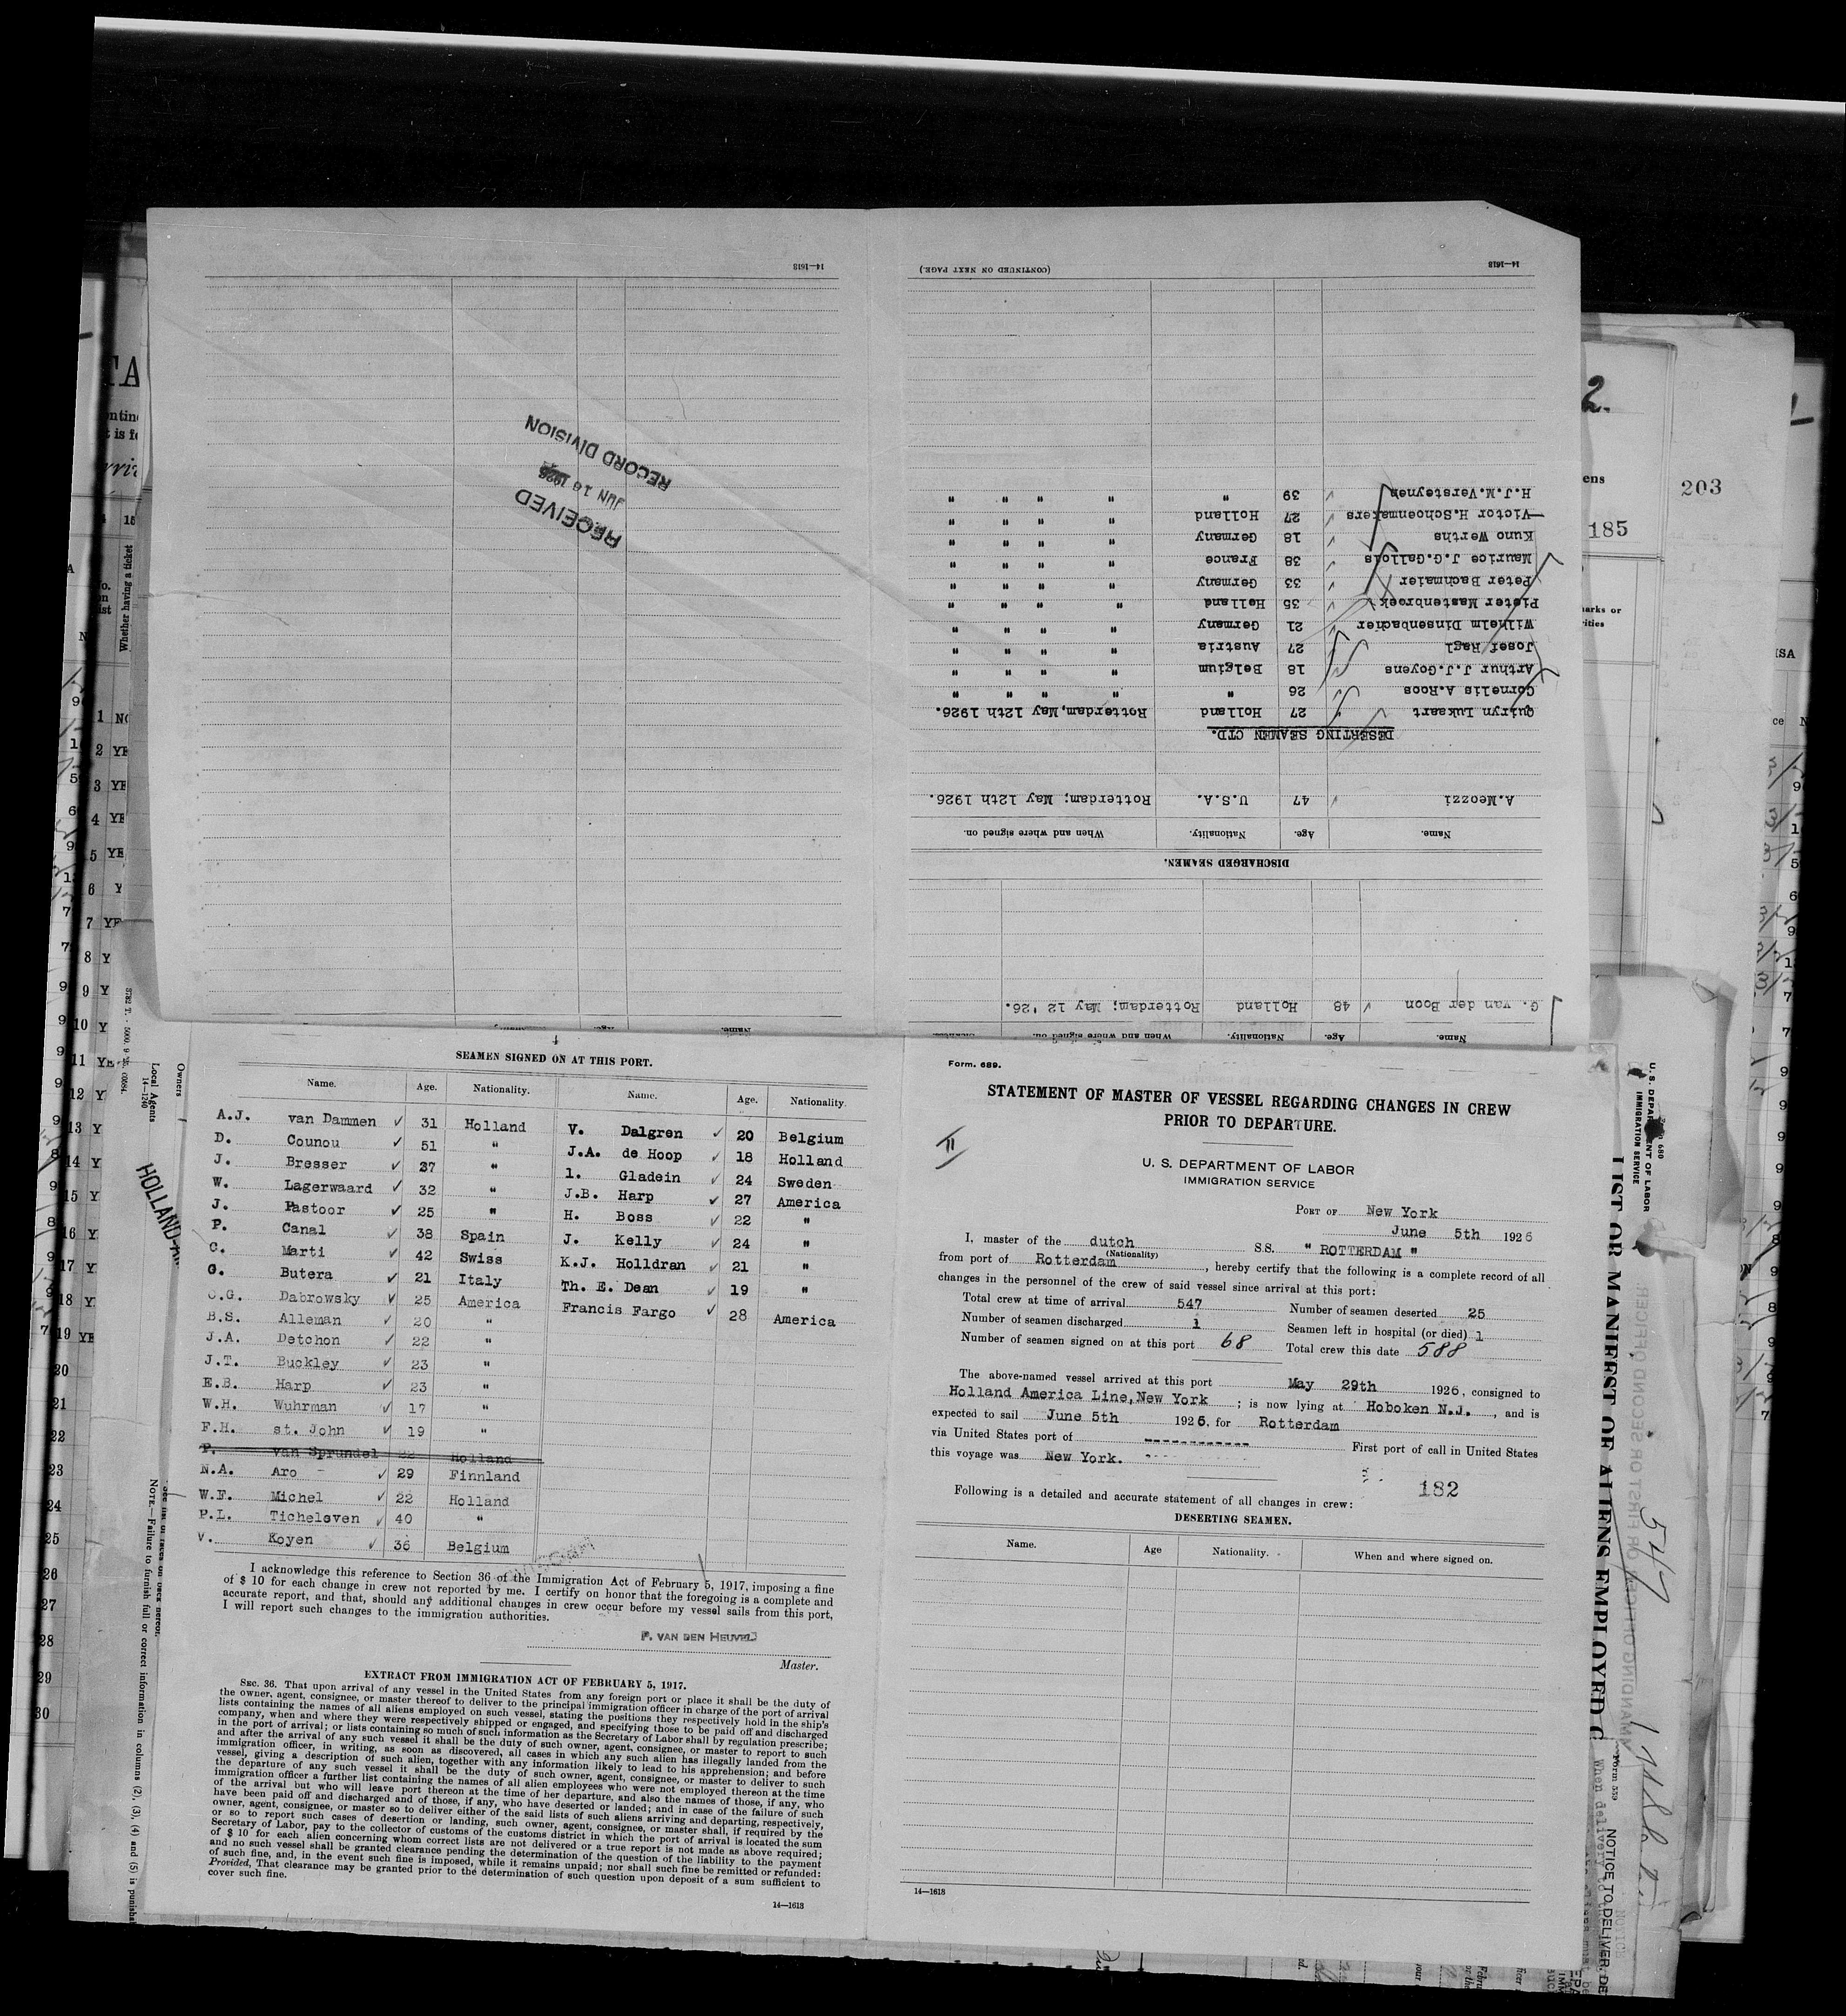 14—1618
(CONTINUED ON NEXT PAGE.)
14—1618
RECEIVED
JUN 16 1926
RECORD DIVISION
G. van der Boon 48 Holland Rotterdam; May 12 '26.
DISCHARGED SEAMEN.
Name. Age. Nationality. When and where signed on.
A.Meozzi 47 U.S.A. Rotterdam; May 12th 1926.
DESERTING SEAMEN CTD.
Quiryn Lukaart 27 Holland Rotterdam,May 12th 1926.
Cornelis A.Roos 26 " " " " "
Arthur J.J.Goyens 18 Belgium " " " "
Josef Ragl 27 Austria " " " "
Wilhelm Dinsenbacher 21 Germany " " " "
Pieter Mastenbroek 35 Holland " " " "
Peter Bachmaier 33 Germany " " " "
Maurice J.G.Gallois 38 France " " " "
Kuno Werths 18 Germany " " " "
Victor H.Schoenmakers 27 Holland " " " "
H.J.M.Versteynen 39 " " " " "
SEAMEN SIGNED ON AT THIS PORT.
Name. Age. Nationality. Name. Age. Nationality.
A.J. van Dammen 31 Holland
D. Counou 51 "
J. Bresser 37 "
W. Lagerwaard 32 "
J. Pastoor 25 "
P. Canal 38 Spain
C. Marti 42 Swiss
G. Butera 21 Italy
C.G. Dabrowsky 25 America
B.S. Alleman 20 "
J.A. Detchon 22 "
J.T. Buckley 23 "
E.B. Harp 23 "
W.H. Wuhrman 17 "
F.H. st. John 19 "
P. van Sprundel 22 Holland
N.A. Aro 29 Finnland
W.F. Michel 22 Holland
P.L. Ticheloven 40 "
V. Koyen 36 Belgium
V. Dalgren 20 Belgium
J.A. de Hoop 18 Holland
l. Gladein 24 Sweden
J.B. Harp 27 America
H. Boss 22 "
J. Kelly 24 "
K.J. Holldran 21 "
Th. E. Dean 19 "
Francis Fargo 28 America
I acknowledge this reference to Section 36 of the Immigration Act of February 5, 1917, imposing a fine
of $ 10 for each change in crew not reported by me. I certify on honor that the foregoing is a complete and
accurate report, and that, should any additional changes in crew occur before my vessel sails from this port,
I will report such changes to the immigration authorities.
VAN DEN HEUVEL
Master.
EXTRACT FROM IMMIGRATION ACT OF FEBRUARY 5, 1917.
SEC. 36. That upon arrival of any vessel in the United States from any foreign port or place it shall be the duty of
the owner, agent, consignee, or master thereof to deliver to the principal immigration officer in charge of the port of arrival
lists containing the names of all aliens employed on such vessel, stating the positions they respectively hold in the ship's
company, when and where they were respectively shipped or engaged, and specifying those to be paid off and discharged
in the port of arrival; or lists containing so much of such information as the Secretary of Labor shall by regulation prescribe;
and after the arrival of any such vessel it shall be the duty of such owner, agent, consignee, or master to report to such
immigration officer, in writing, as soon as discovered, all cases in which any such alien has illegally landed from the
vessel, giving a description of such alien, together with any information likely to lead to his apprehension; and before
the departure of any such vessel it shall be the duty of such owner, agent, consignee, or master to deliver to such
immigration officer a further list containing the names of all alien employees who were not employed thereon at the time
of the arrival but who will leave port thereon at the time of her departure, and also the names of those, if any, who
have been paid off and discharged and of those, if any, who have deserted or landed; and in case of the failure of such
owner, agent, consignee, or master so to deliver either of the said lists of such aliens arriving and departing, respectively,
or so to report such cases of desertion or landing, such owner, agent, consignee, or master shall, if required by the
Secretary of Labor, pay to the collector of customs of the customs district in which the port of arrival is located the sum
of $ 10 for each alien concerning whom correct lists are not delivered or a true report is not made as above required;
and no such vessel shall be granted clearance pending the determination of the question of the liability to the payment
of such fine, and, in the event such fine is imposed, while it remains unpaid; nor shall such fine be remitted or refunded:
Provided, That clearance may be granted prior to the determination of such question upon deposit of a sum sufficient to
cover such fine.
14—1618
Form. 689.
STATEMENT OF MASTER OF VESSEL REGARDING CHANGES IN CREW
PRIOR TO DEPARTURE.
II
U. S. DEPARTMENT OF LABOR
IMMIGRATION SERVICE
PORT OF New York
June 5th 1926
I, master of the dutch S.S. " ROTTERDAM "
(Nationality)
from port of Rotterdam, hereby certify that the following is a complete record of all
changes in the personnel of the crew of said vessel since arrival at this port:
Total crew at time of arrival 547 Number of seamen deserted 25
Number of seamen discharged 1 Seamen left in hospital (or died) 1
Number of seamen signed on at this port 68 Total crew this date 588
The above-named vessel arrived at this port May 29th 1926, consigned to
Holland America Line,New York ; is now lying at Hoboken N.J. , and is
expected to sail June 5th 1926, for Rotterdam
via United States port of ------------ First port of call in United States
this voyage was New York.
182
Following is a detailed and accurate statement of all changes in crew:
DESERTING SEAMEN.
Name. Age Nationality. When and where signed on.
14—1618
2.
203
185
LIST OR MANIFEST OF ALIENS EMPLOYED
547
U.S. DEPARTMENT OF LABOR
IMMIGRATION SERVICE
Form 680
NOTICE TO DELIVER
Whether having a ticket
Owners
Local Agents
14—1240
HOLLAND-
NOTE.—Failure to furnish full or correct information in columns (2), (3), (4) and (5) is